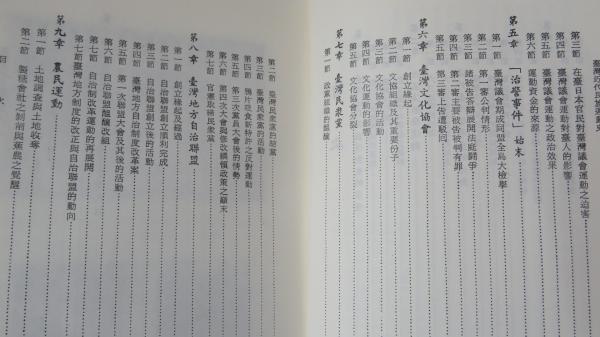 近代民族運動史
第三節 在臺日本官民對臺灣議會運動之迫害
第四節 臺灣議會運動對臺人的影響
第五節 臺灣議會運動之政治效果
第六節 運動資金的來源
第五章 「治警事件」始末
第一節 臺灣議會期成同盟全島大檢舉
第二節 第一審公判情形
第三節 諸被告答辯展開法庭鬪爭
第四節 第二審主要被告被判有罪
第五節 第三審上告遭駁回
第六章 臺灣文化協會
第一節 創立緣起
第二節 文協組織及其重要份子
第三節 文化協會的活動
第四節 文化運動的影響
第五節 文化協會分裂
第七章 臺灣民衆黨
第一節 政黨組織的醞釀
第二節 臺灣民衆黨的結黨
第三節 臺灣民衆黨的活動
第四節 鴉片吸食新特許之反對運動
第五節 第三次黨員大會後的情勢
第六節 第四次大會與修改綱領政策之顚末
第七節 官憲取締民衆黨
第八章 臺灣地方自治聯盟
第一節 創立緣起及經過
第二節 自治聯盟創立順利完成
第三節 自治聯盟創立後的活動
第四節 臺灣地方自治制度改革案
第五節 第一次聯盟大會及其後的活動
第六節 自治聯盟醞釀改組
第七節 自治制改革運動的再展開
第七節 臺灣地方制度的改正與自治聯盟的動向
第九章 農民運動
第一節 土地調查與土地收奪
第二節 製糖會社之剝削與蔗農之覺醒
目 次